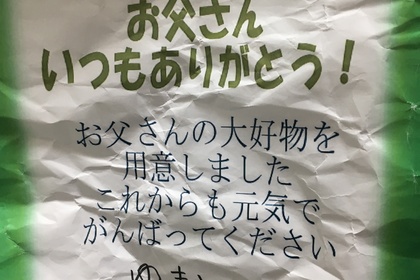 お父さん
いつもありがとう！
お父さんの大好物を
用意しました
これからも元気で
がんばってください